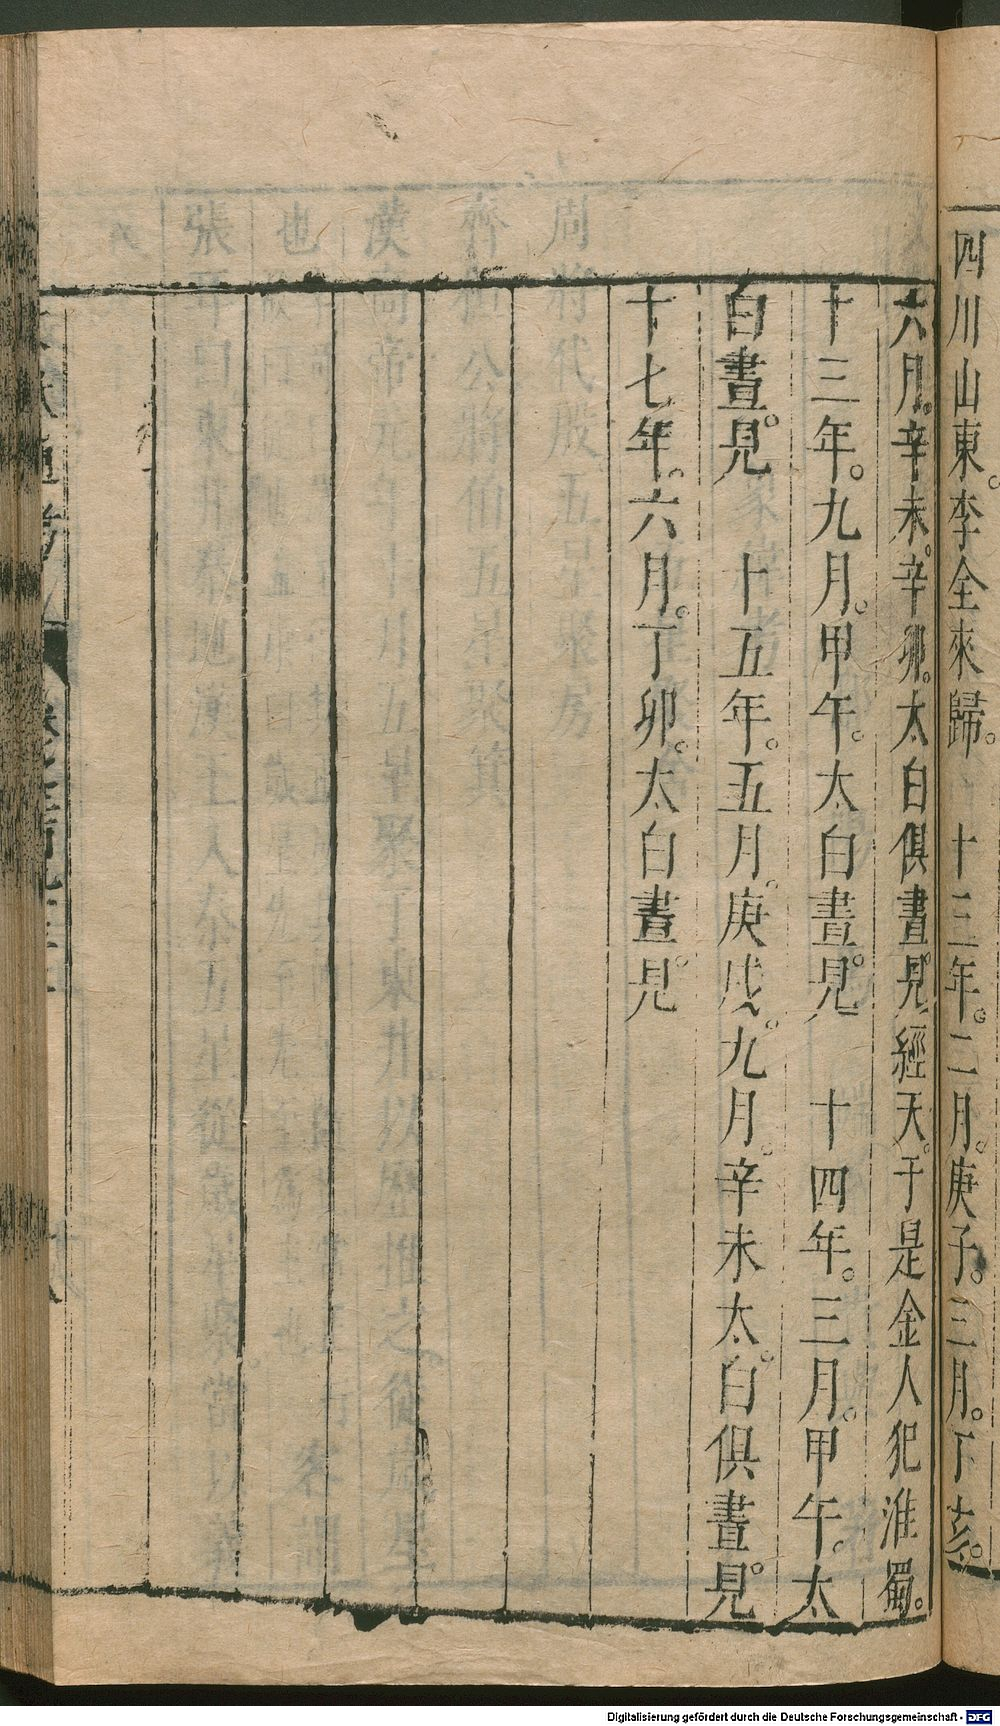 四川山東。李全來歸。 十三年。二月。庚子。三月。丁亥。
六月。辛未。辛卯。太白俱晝見。經天。于是金人犯淮蜀。
十三年。九月。甲午。太白晝見。 十四年。三月。甲午。太
白晝見。 十五年。五月。庚戌。九月。辛未太。白俱晝見。
十七年。六月。丁卯。太白晝見。
通考
Digitalisierung gefördert durch die Deutsche Forschungsgemeinschaft - DFG